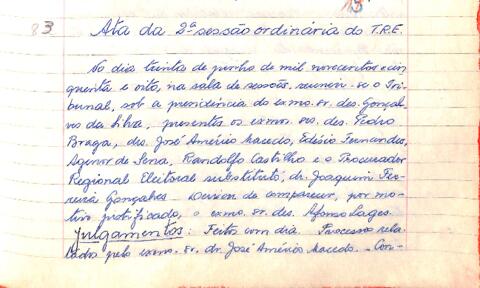 83
13
Ata da 2ª sessão ordinária do T.R.E.
No dia trinta de junho de mil novecentos e cin-
quenta e oito, na sala de sessões, reuniu-se o Tri-
bunal, sob a presidência do exmo. sr. des. Gonçal-
ves da Silva, presentes os exmos. srs. des. Pedro
Braga, drs. José Américo Macedo, Edésio Fernandes,
Agenor de Sena, Randolfo Castilho e o Procurador
Regional Eleitoral substituto, dr. Joaquim Fer-
reira Gonçalves. Deixou de comparecer, por mo-
tivo justificado, o exmo. sr. des. Afonso Lages.
Julgamentos: Feitos com dia. Processo rela-
tado pelo exmo. sr. dr. José Américo Macedo. Con-